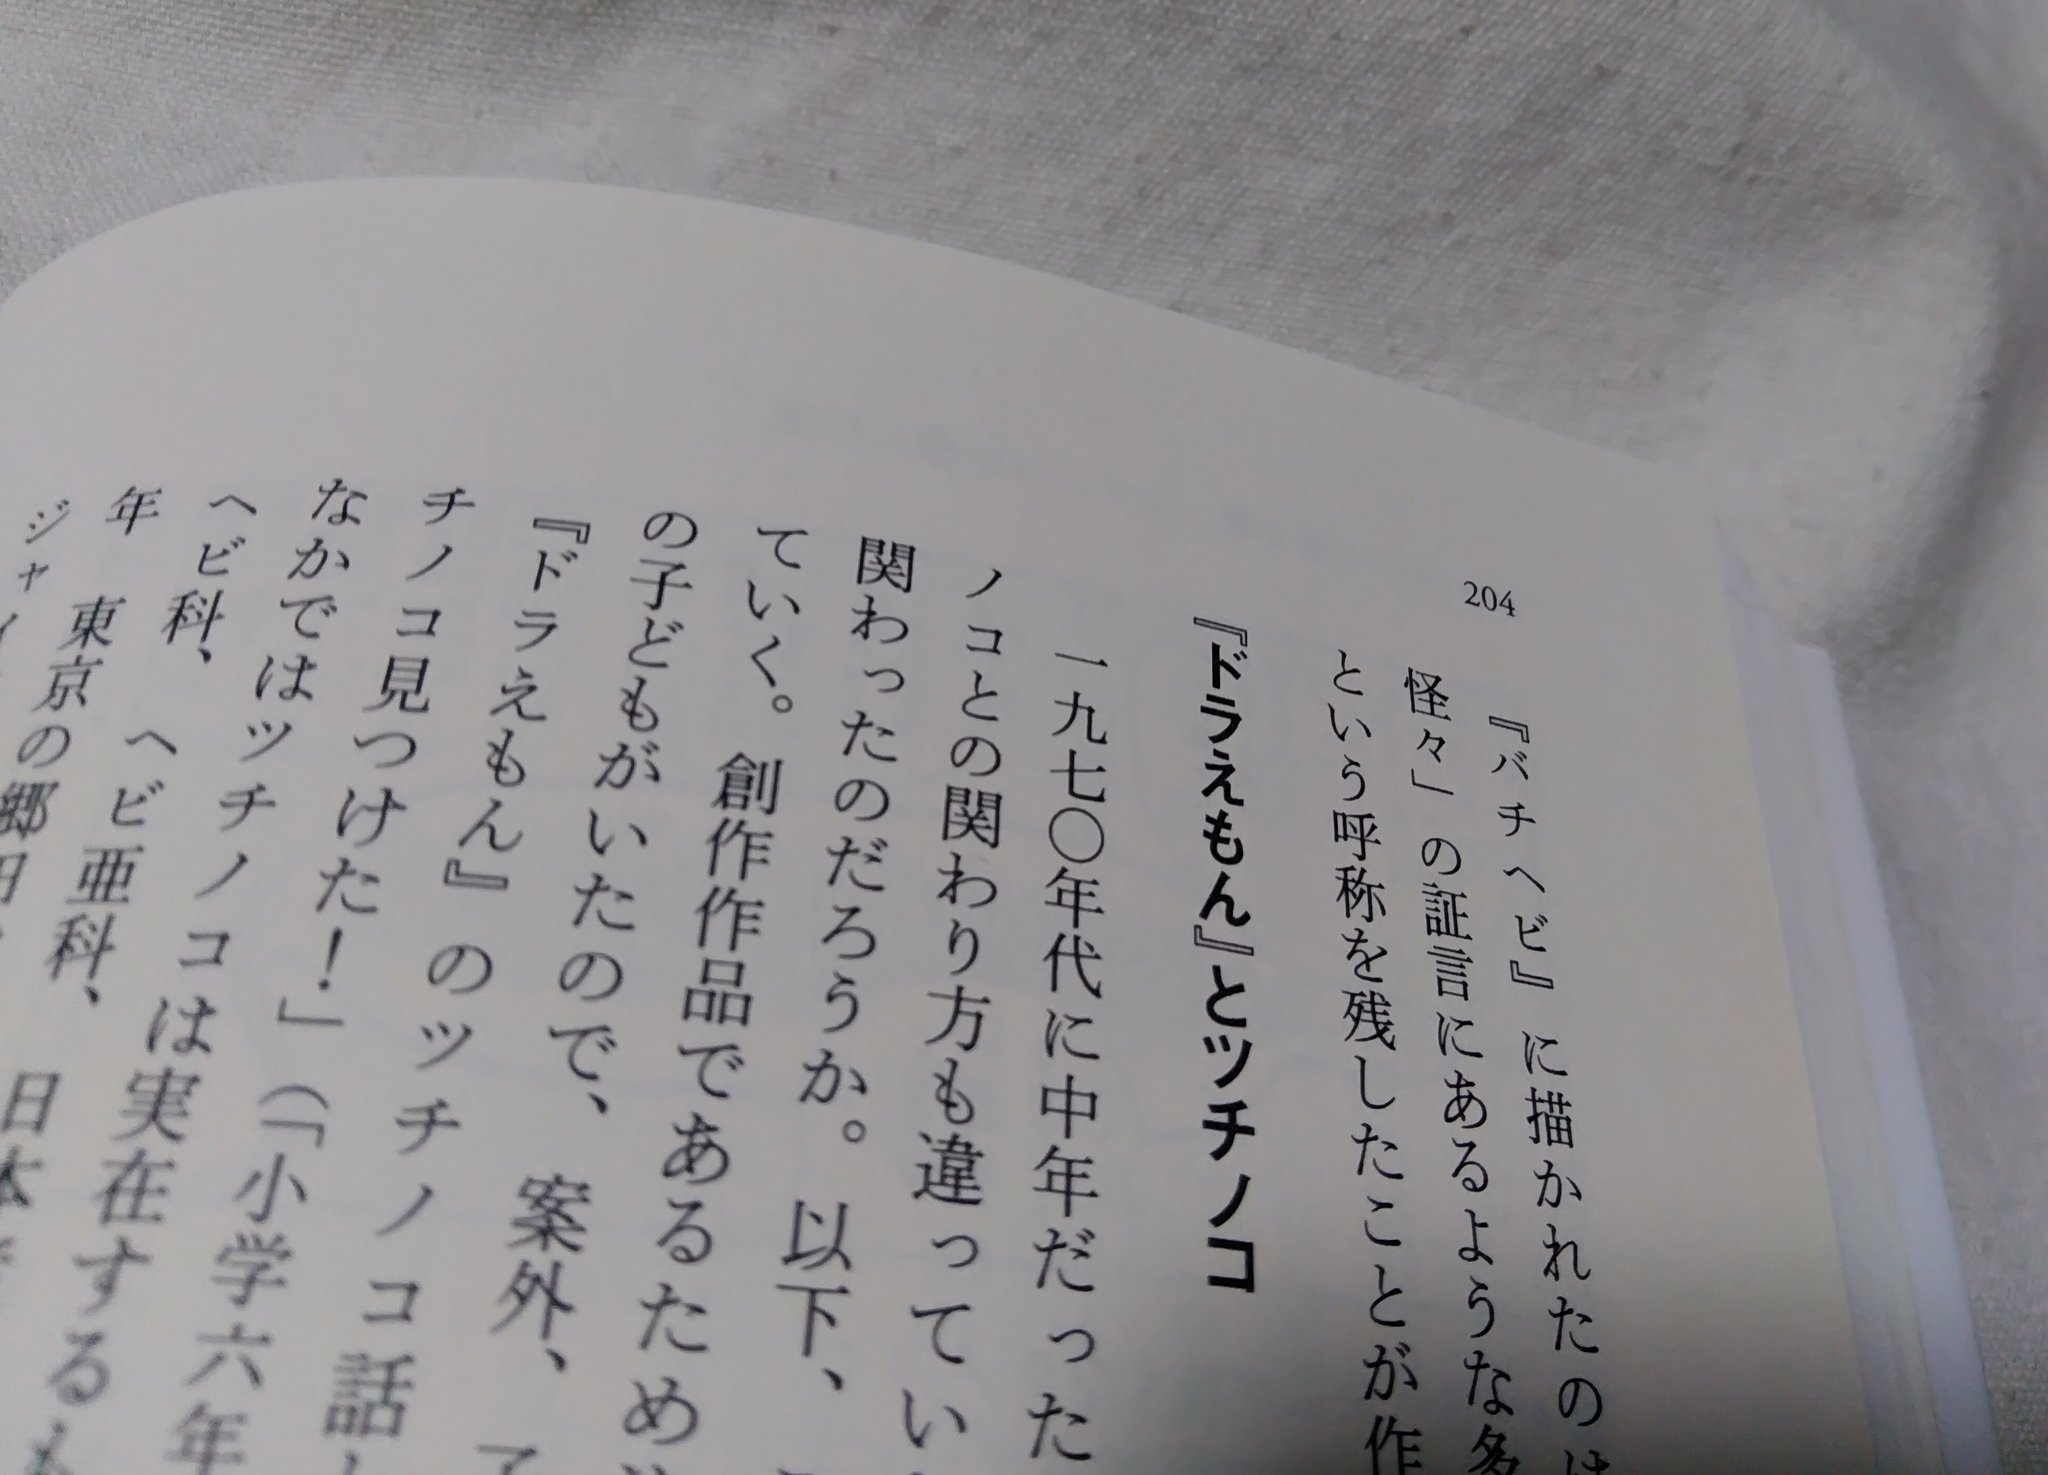 204
『バチヘビ』に描かれたのは
怪々」の証言にあるような多
という呼称を残したことが作
『ドラえもん』とツチノコ
一九七〇年代に中年だった
ノコとの関わり方も違ってい
関わったのだろうか。以下、
ていく。創作作品であるため
の子どもがいたので、案外、
『ドラえもん』のツチノコ話
チノコ見つけた！」（「小学六年
なかではツチノコは実在する
ヘビ科、ヘビ亜科、
年 東京の郷田 日本
ジャイ